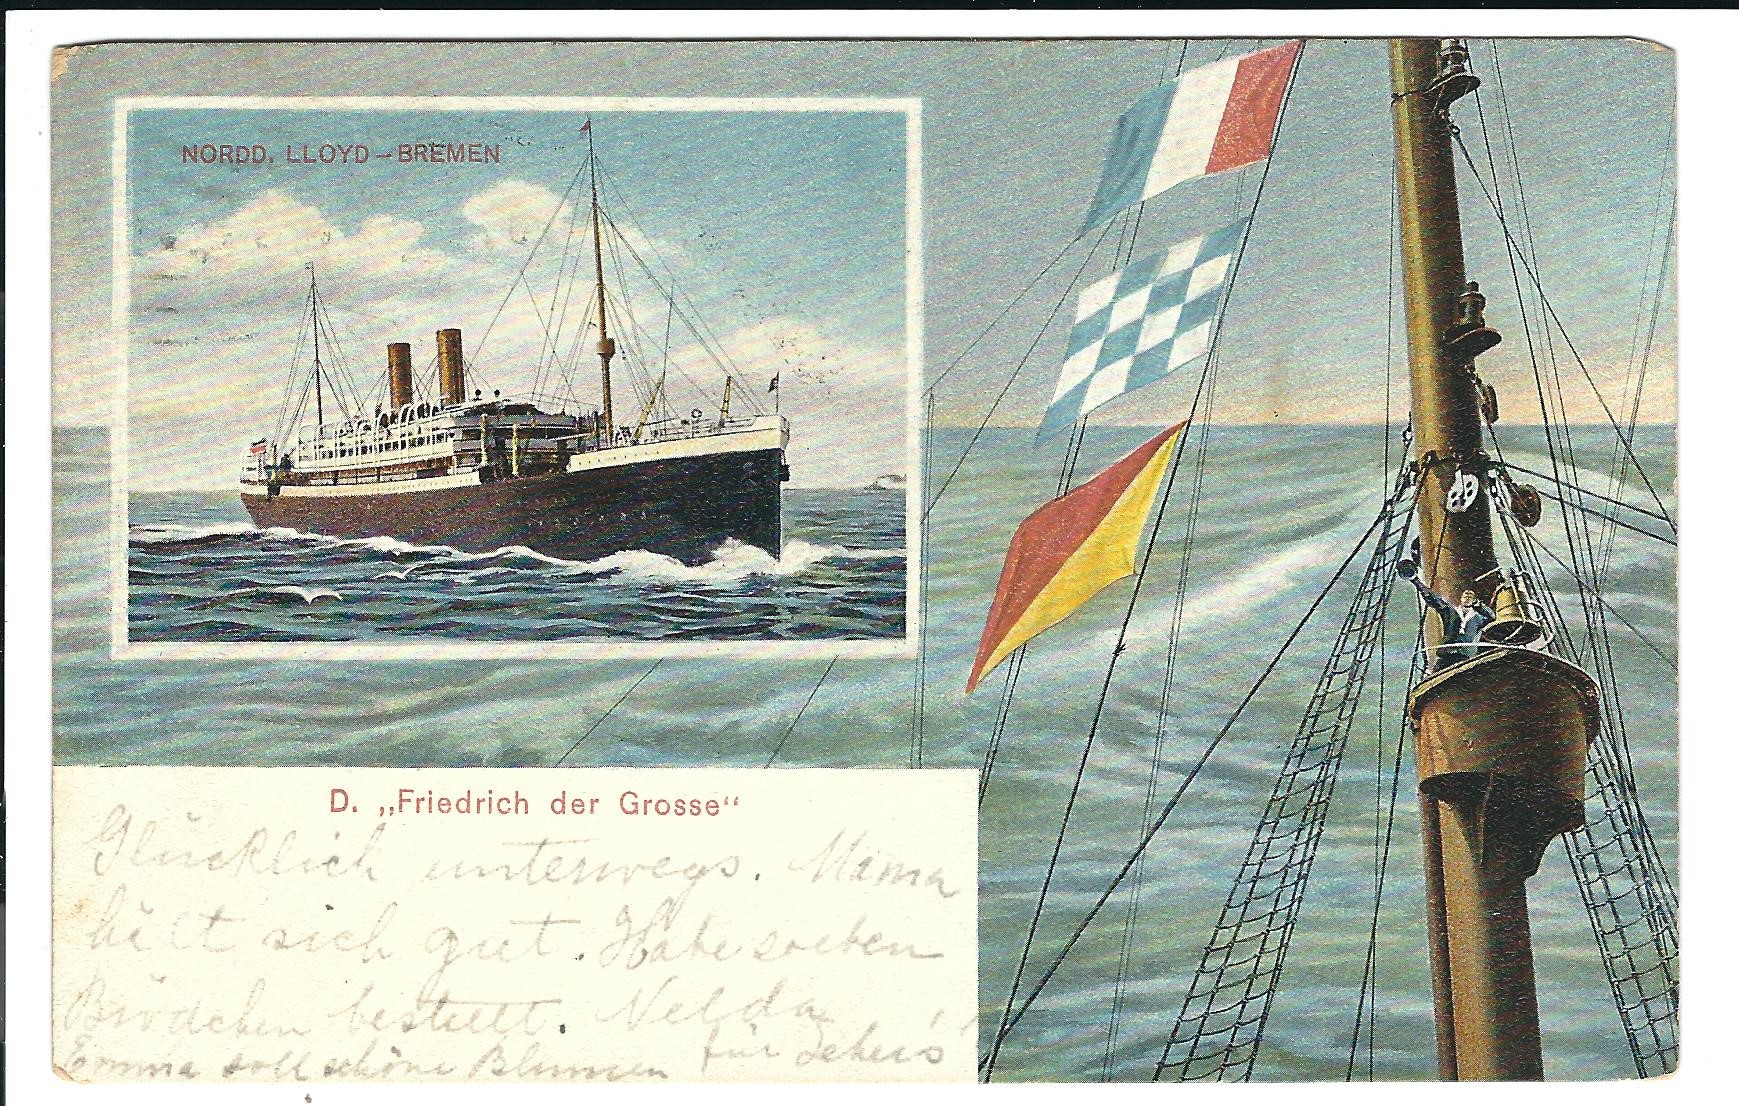 NORDD. LLOYD – BREMEN
D. „Friedrich der Grosse“
Glücklich unterwegs. Mama
hält sich gut. Habe soeben
Brödchen bestellt. Nelda
Emma soll schöne Blumen für